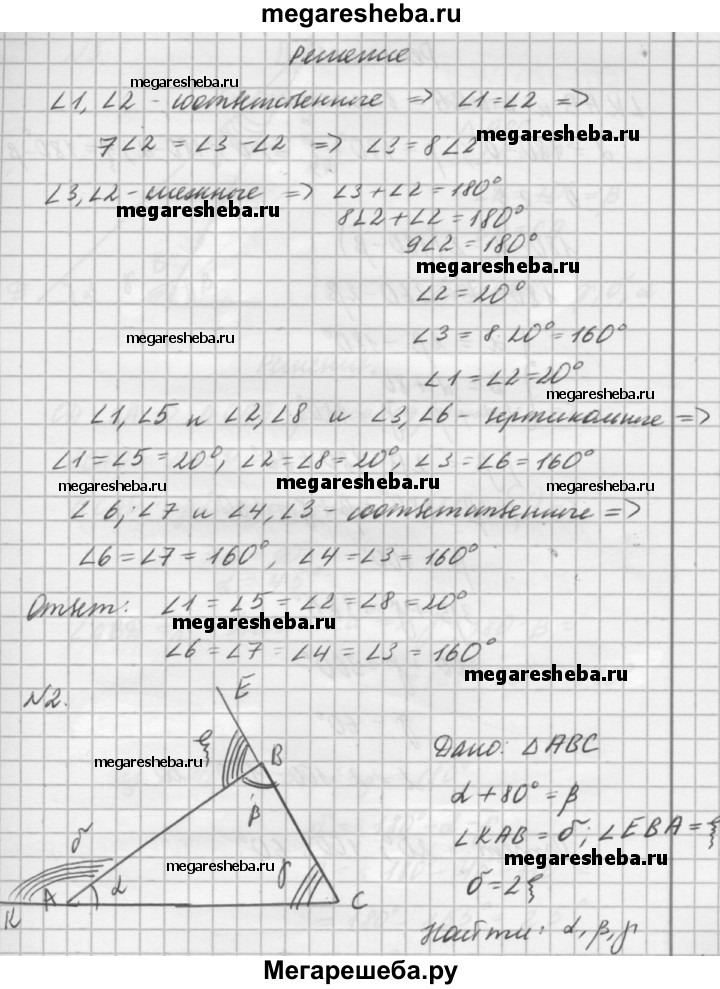 megaresheba.ru
Решение
megaresheba.ru
∠1, ∠2 - соответственные => ∠1 = ∠2 =>
7∠2 = ∠3 - ∠2 => ∠3 = 8∠2
megaresheba.ru
∠3, ∠2 - смежные => ∠3 + ∠2 = 180°
megaresheba.ru
8∠2 + ∠2 = 180°
9∠2 = 180°
megaresheba.ru
∠2 = 20°
megaresheba.ru
∠3 = 8·20° = 160°
∠1 = ∠2 = 20°
megaresheba.ru
∠1, ∠5 и ∠2, ∠8 и ∠3, ∠6 - вертикальные =>
∠1 = ∠5 = 20°, ∠2 = ∠8 = 20°, ∠3 = ∠6 = 160°
megaresheba.ru megaresheba.ru megaresheba.ru
∠6, ∠7 и ∠4, ∠3 - соответственные =>
∠6 = ∠7 = 160°, ∠4 = ∠3 = 160°
Ответ: ∠1 = ∠5 = ∠2 = ∠8 = 20°
megaresheba.ru
∠6 = ∠7 = ∠4 = ∠3 = 160°
megaresheba.ru
№2.
E
ξ
B
megaresheba.ru
β
б
megaresheba.ru
γ
K A α C
Дано: △ABC
α + 80° = β
∠KAB = б; ∠EBA = ξ
megaresheba.ru
б = 2ξ
Найти: α, β, γ
Мегарешеба.ру